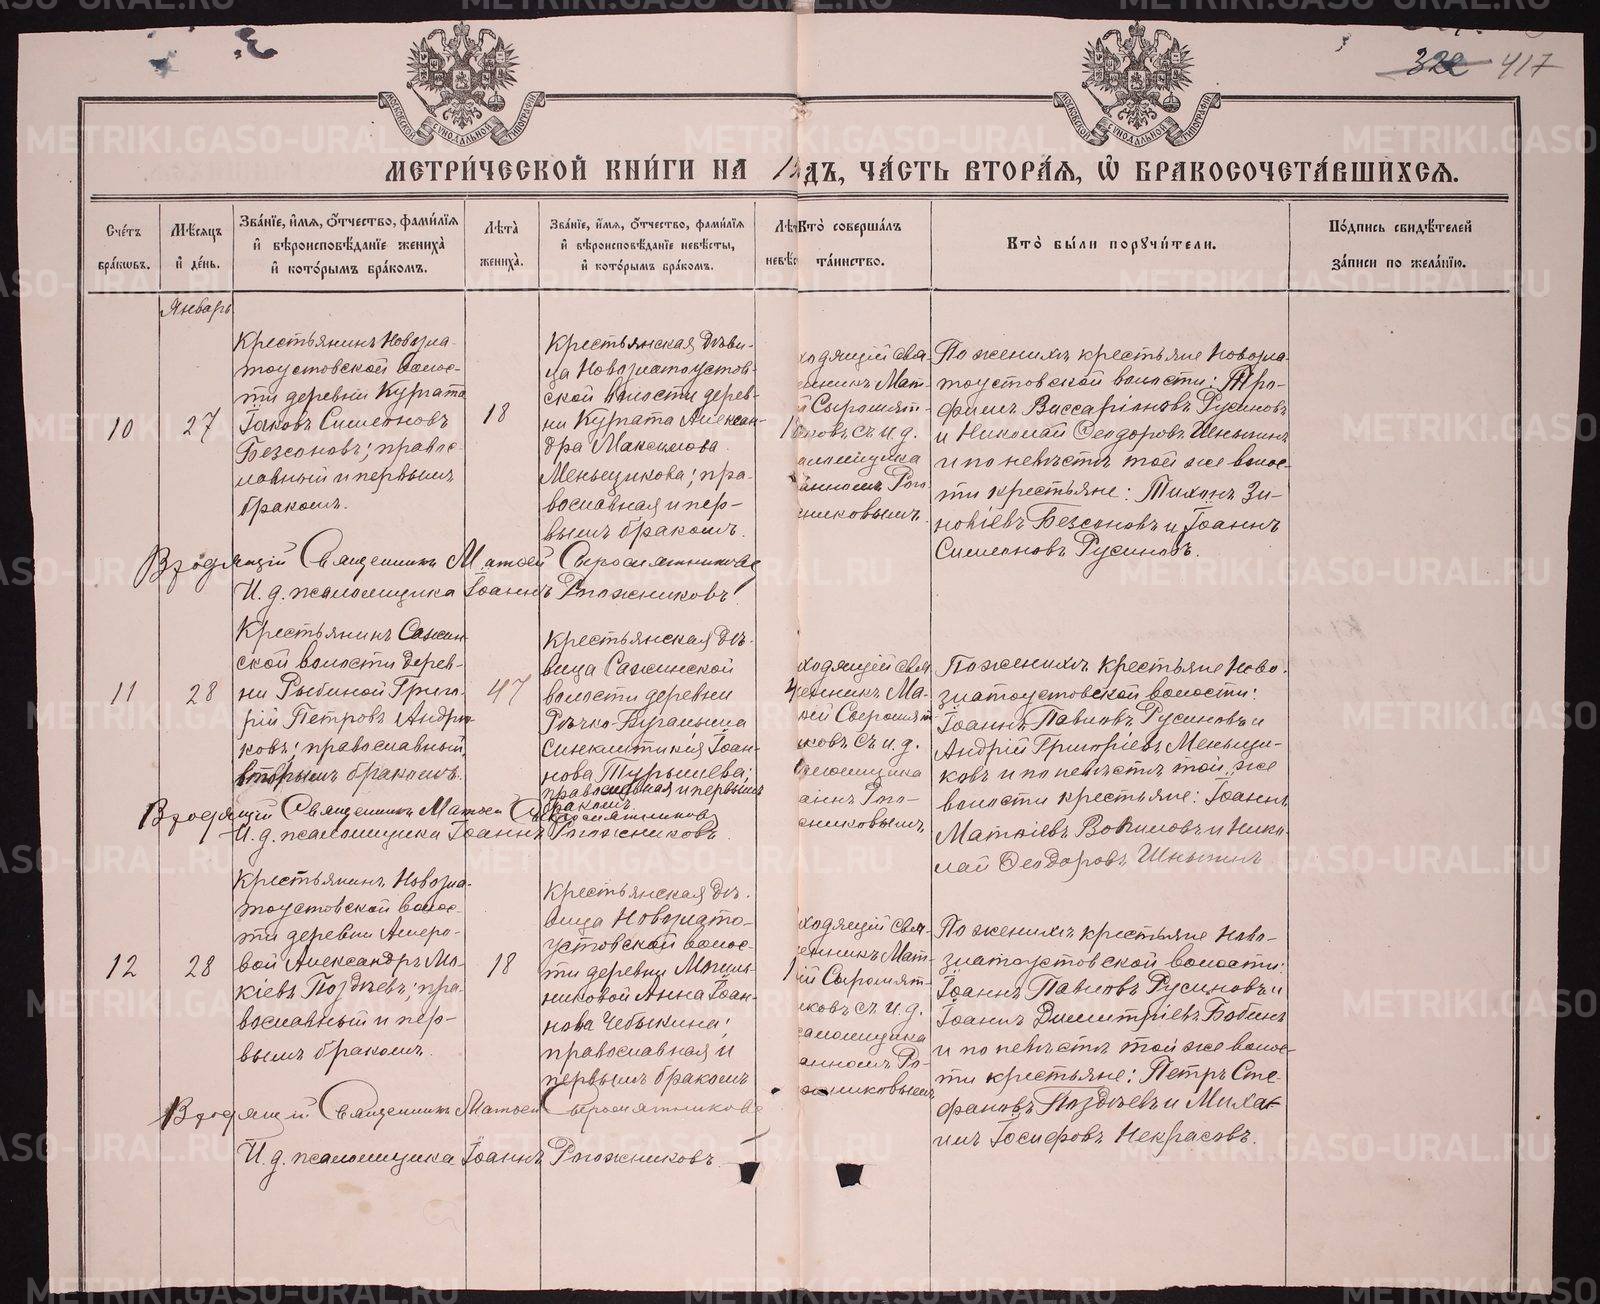 322 417
МОСКОВСКОЙ СѴНОДАЛЬНОЙ ТИПОГРАФІИ
МОСКОВСКОЙ СѴНОДАЛЬНОЙ ТИПОГРАФІИ
МЕТРИ́ЧЕСКОЙ КНИ́ГИ НА 1 ДЪ, ЧА́СТЬ ВТОРА́Я, Ѡ БРАКОСОЧЕТА́ВШИХСЯ.
Сче́тъ бра́кѡвъ.
Мѣ́сяцъ и де́нь.
Зва́нїе, и́мя, о́тчество, фами́лїя
и вѣроисповѣ́данїе жениха̀
и кото́рымъ бра́комъ.
Лѣта̀ жениха̀.
Зва́нїе, и́мя, о́тчество, фами́лїя
и вѣроисповѣ́данїе невѣ́сты,
и кото́рымъ бра́комъ.
Лѣт
невѣс
Кто̀ соверша́лъ
та́инство.
Кто̀ бы́ли поручи́тели.
По́дпись свидѣ́телей
за́писи по жела́нїю.
Январь
10
27
Крестьянинъ Новозла-
тоустовской волос-
ти деревни Кургата
Іаковъ Симеоновъ
Безсоновъ; правос-
лавный и первымъ
бракомъ.
18
Крестьянская дѣви-
ца Новозлатоустов-
ской волости дерев-
ни Кургата Алексан-
дра Максимова
Меньщикова; пра-
вославная и пер-
вымъ бракомъ.
1
ходящій свя-
щенникъ Мат-
ѳ Сыромят-
никовъ съ и. д.
псаломщика
Іоанномъ Рого-
жниковымъ.
По женихѣ крестьяне Новозла-
тоустовской волости: Тро-
фимъ Виссаріоновъ Русиновъ
и Николай Ѳеодоровъ Шныпинъ
и по невѣстѣ той же волос-
ти крестьяне: Тихонъ Зи-
новіевъ Безсоновъ и Іоаннъ
Симеоновъ Русиновъ.
Входящій Священникъ Матѳей Сыромятниковъ
И. д. псаломщика Іоаннъ Рогожниковъ
11
28
Крестьянинъ Сажин-
ской волости дерев-
ни Рыбиной Григо-
рій Петровъ Андрю-
ковъ; православный
вторымъ бракомъ.
47
Крестьянская дѣ-
вица Сажинской
волости деревни
Рѣчко-Бугалыша
Синклитикія Іоан-
нова Турышева;
православная и первымъ
бракомъ.
4
ходящій свя
щенникъ Ма-
ѳей Сыромят
ковъ съ и. д.
псаломщика
Іоаннъ Рого-
жниковымъ
По женихѣ крестьяне Ново-
златоустовской волости:
Іоаннъ Павловъ Русиновъ и
Андрій Григоріевъ Меньщи-
ковъ и по невѣстѣ той же
волости крестьяне: Іоаннъ
Матѳіевъ Вотиновъ и Нико-
лай Ѳеодоровъ Шныпинъ
Входящій Священникъ Матѳей Сыромятниковъ
И. д. псаломщика Іоаннъ Рогожниковъ
12
28
Крестьянинъ Новозла-
тоустовской волос-
ти деревни Амеро-
вой Александръ Мо-
кіевъ Поздѣевъ; пра-
вославный и пер-
вымъ бракомъ.
18
Крестьянская дѣ-
вица Новозлато-
устовской волос-
ти деревни Могиль-
никовой Анна Іоан-
нова Чебыкина;
православная и
первымъ бракомъ
1
ходящій свя-
щенникъ Мат-
ѳій Сыромят-
никовъ съ и. д.
псаломщика
Іоанномъ Ро-
гожниковымъ
По женихѣ крестьяне Ново-
златоустовской волости:
Іоаннъ Павловъ Русиновъ и
Іоаннъ Димитріевъ Бобинъ
и по невѣстѣ той же волос-
ти крестьяне: Петръ Сте-
фановъ Поздѣевъ и Миха-
илъ Іосифовъ Некрасовъ.
Входящій Священникъ Матѳей Сыромятниковъ
И. д. псаломщика Іоаннъ Рогожниковъ.
METRIKI.GASO-URAL.RU